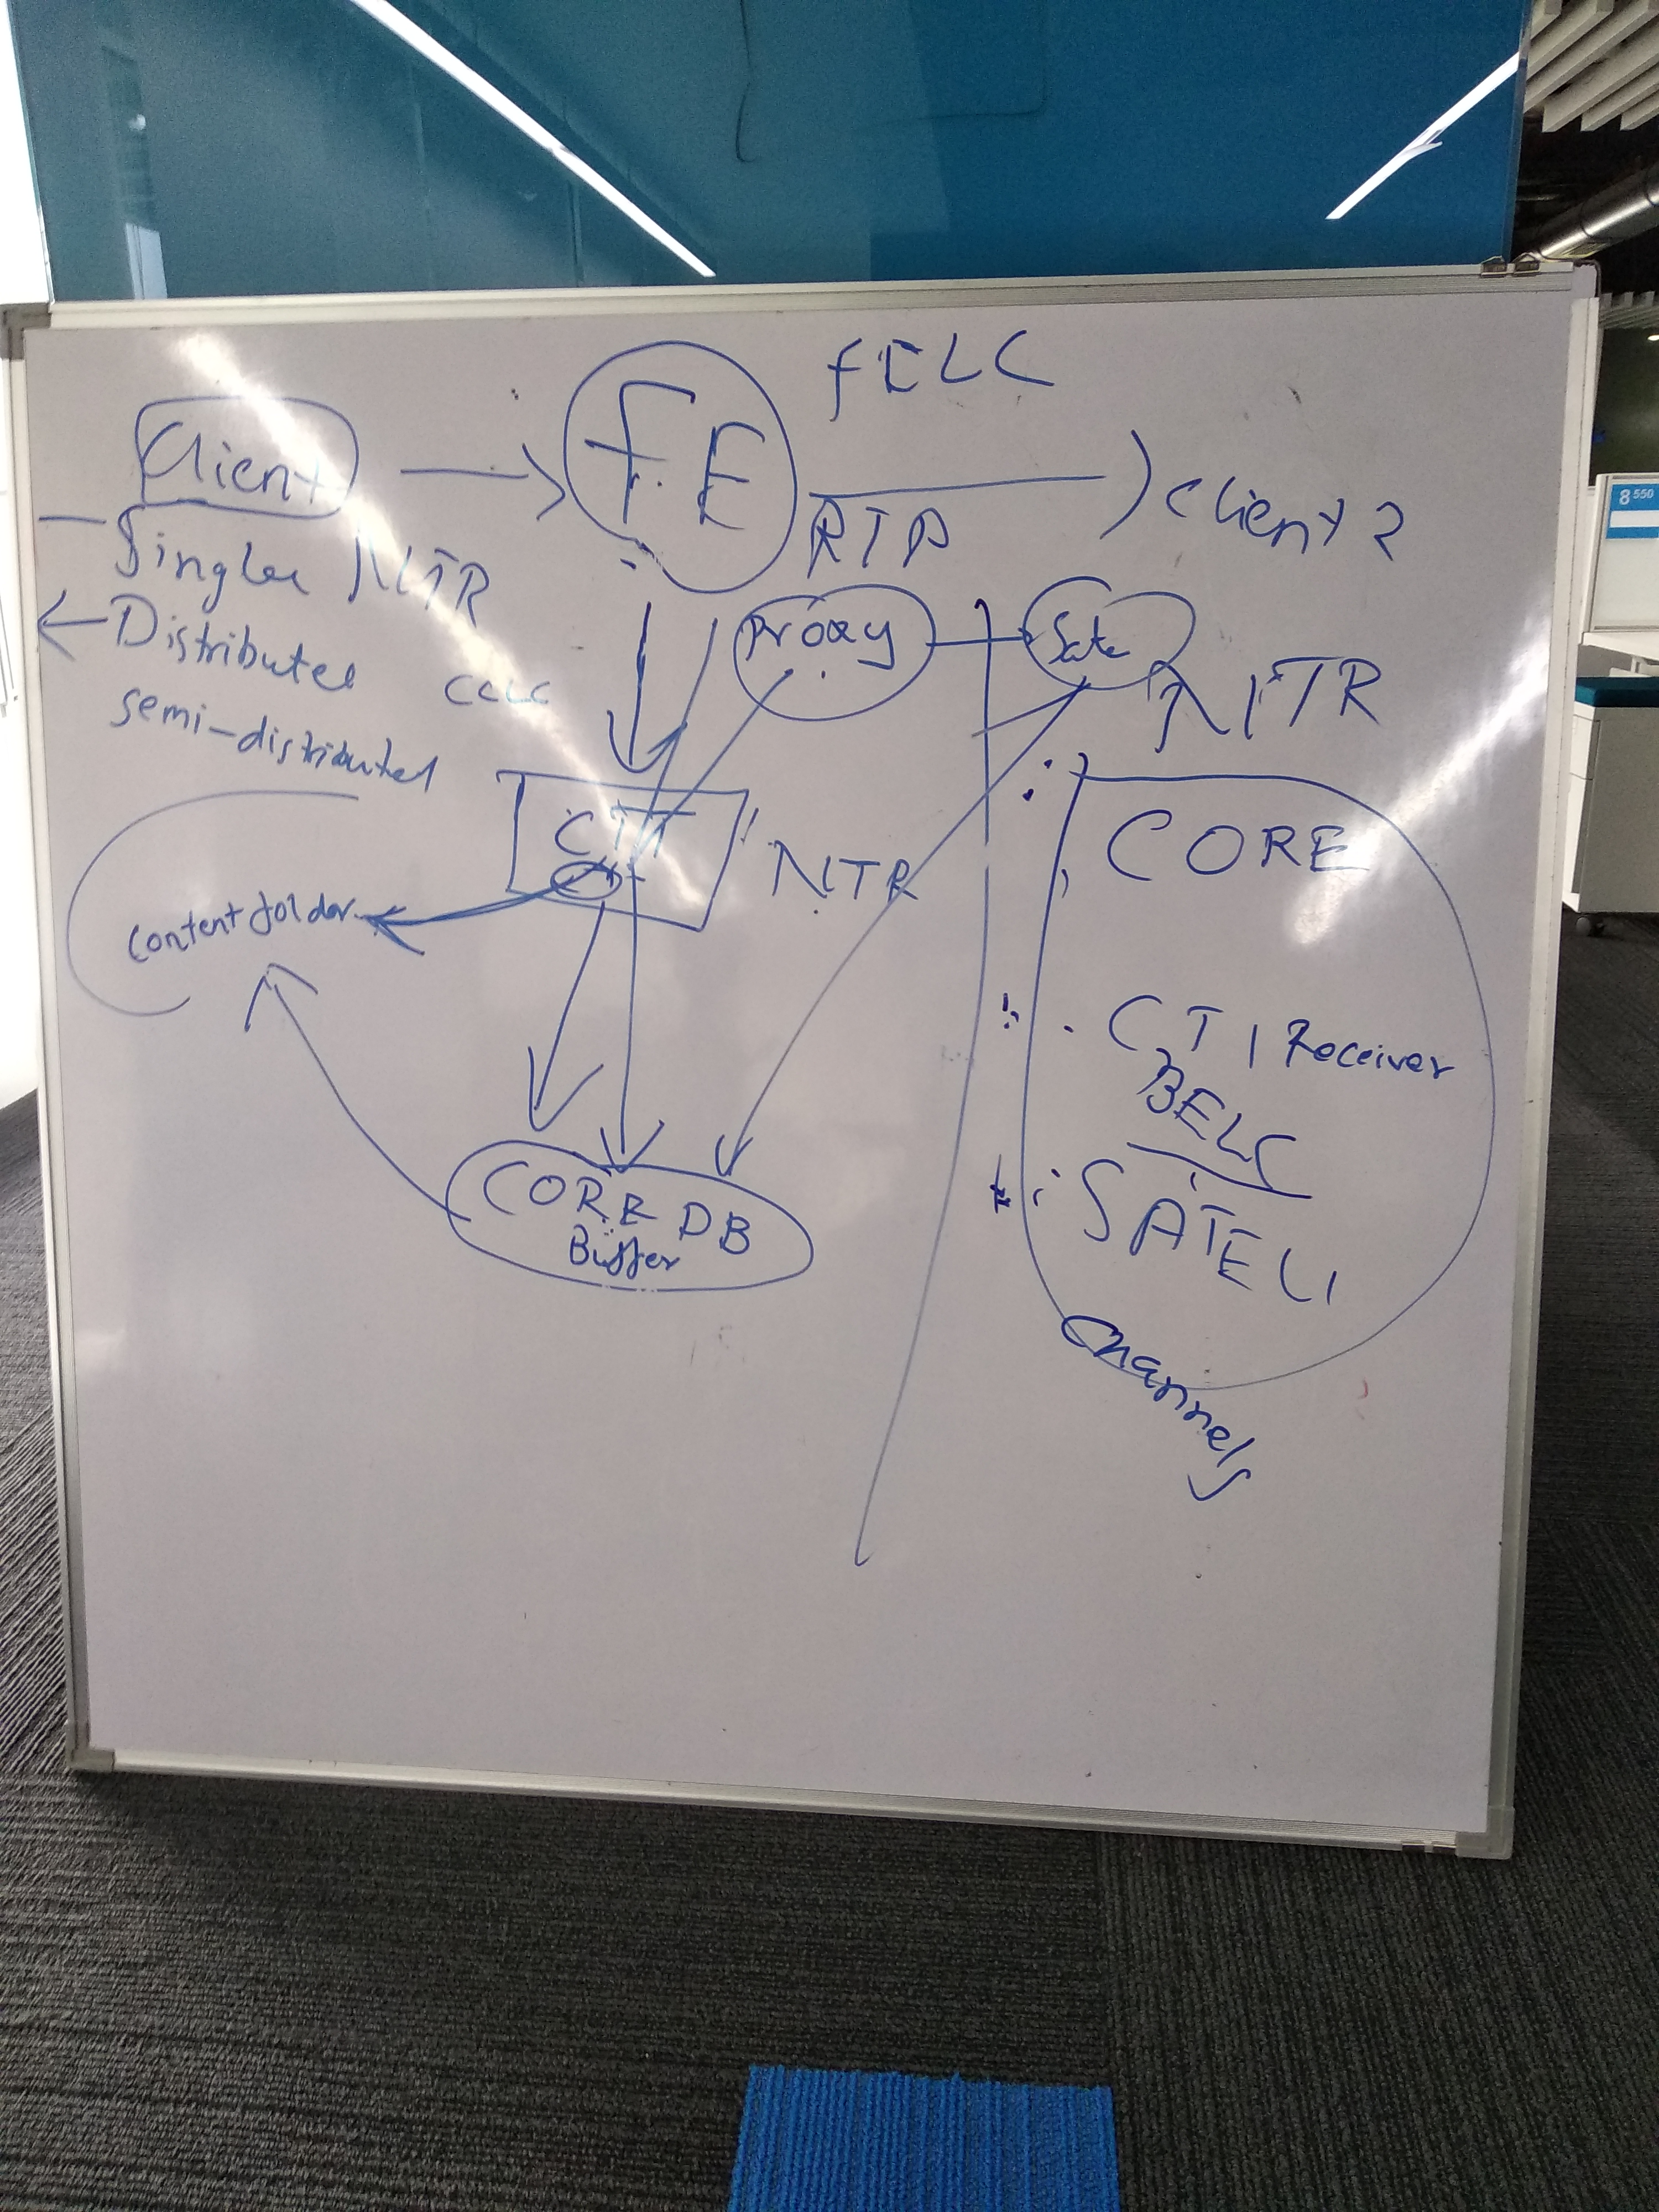 fELC
Client
F.E
RTP
Client 2
NTR
Distributed
semi-distributed
Proxy
Sate
NTR
CORE
NTR
content folder
CTI Receiver
BELC
SATELI
CORE DB
Buffer
Channels
8 550